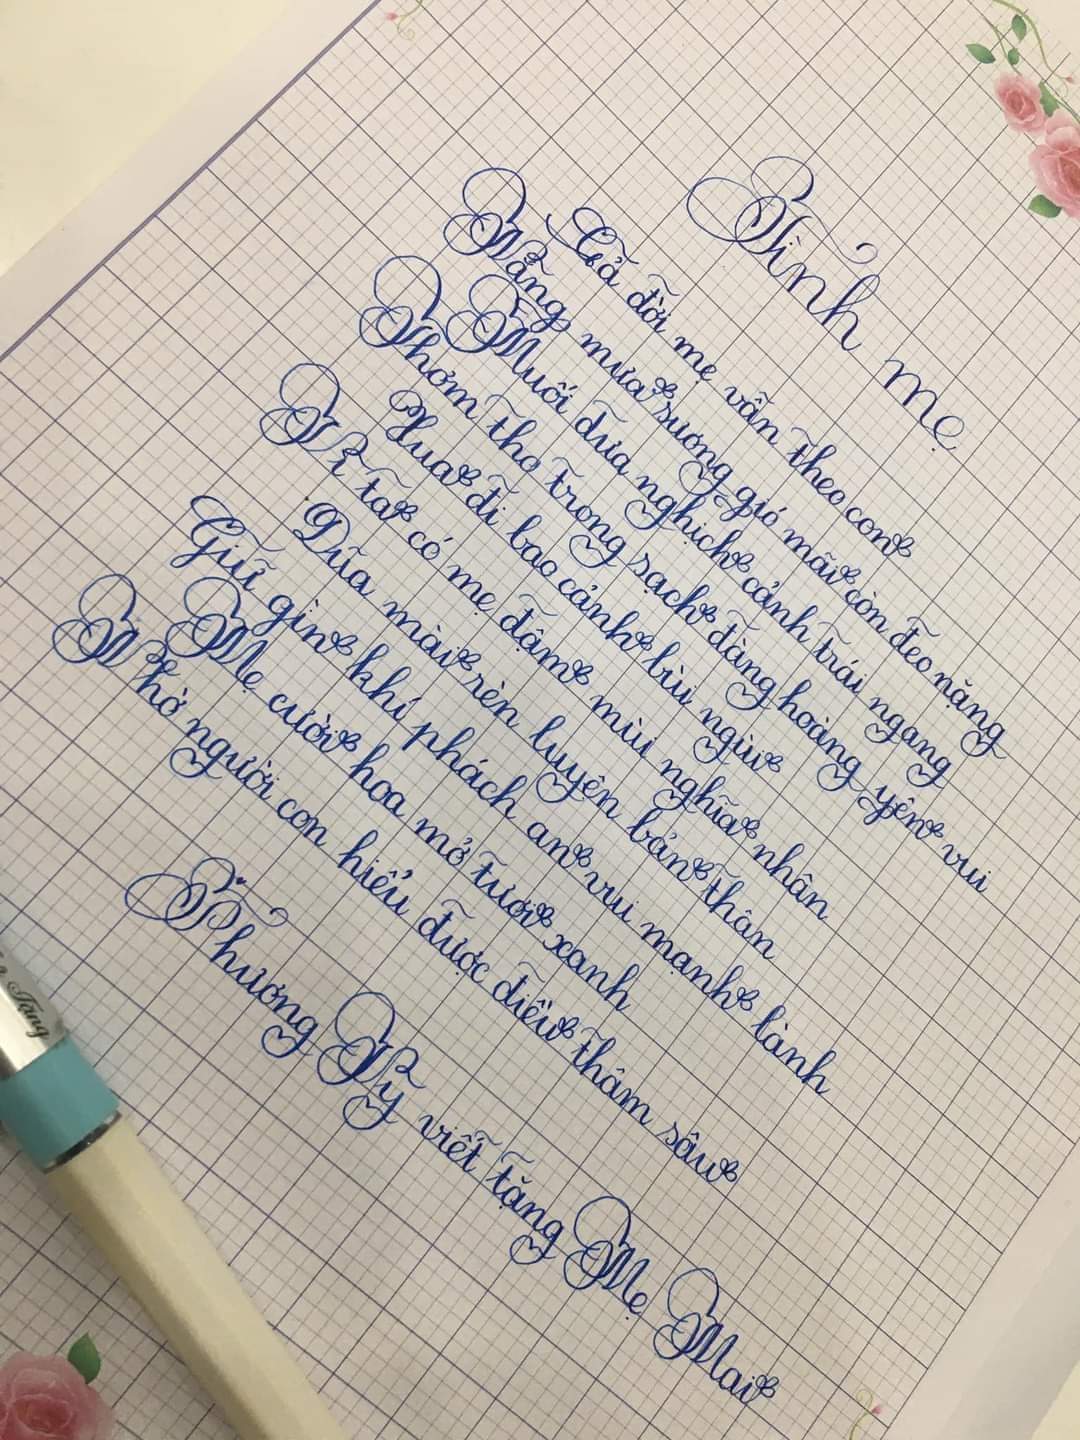 Tình mẹ
Cả đời mẹ vẫn theo con
Nắng mưa sương gió mãi còn đeo nặng
Muối dưa nghịch cảnh trái ngang
Thơm tho trong sạch đàng hoàng yên vui
Xua đi bao cảnh bùi ngùi
Vì ta có mẹ đậm mùi nghĩa nhân
Dũa mài rèn luyện bản thân
Giữ gìn khí phách an vui mạnh lành
Mẹ cười hoa mở tươi xanh
Nhờ người con hiểu được điều thâm sâu
Phương Vy viết tặng Mẹ Mai